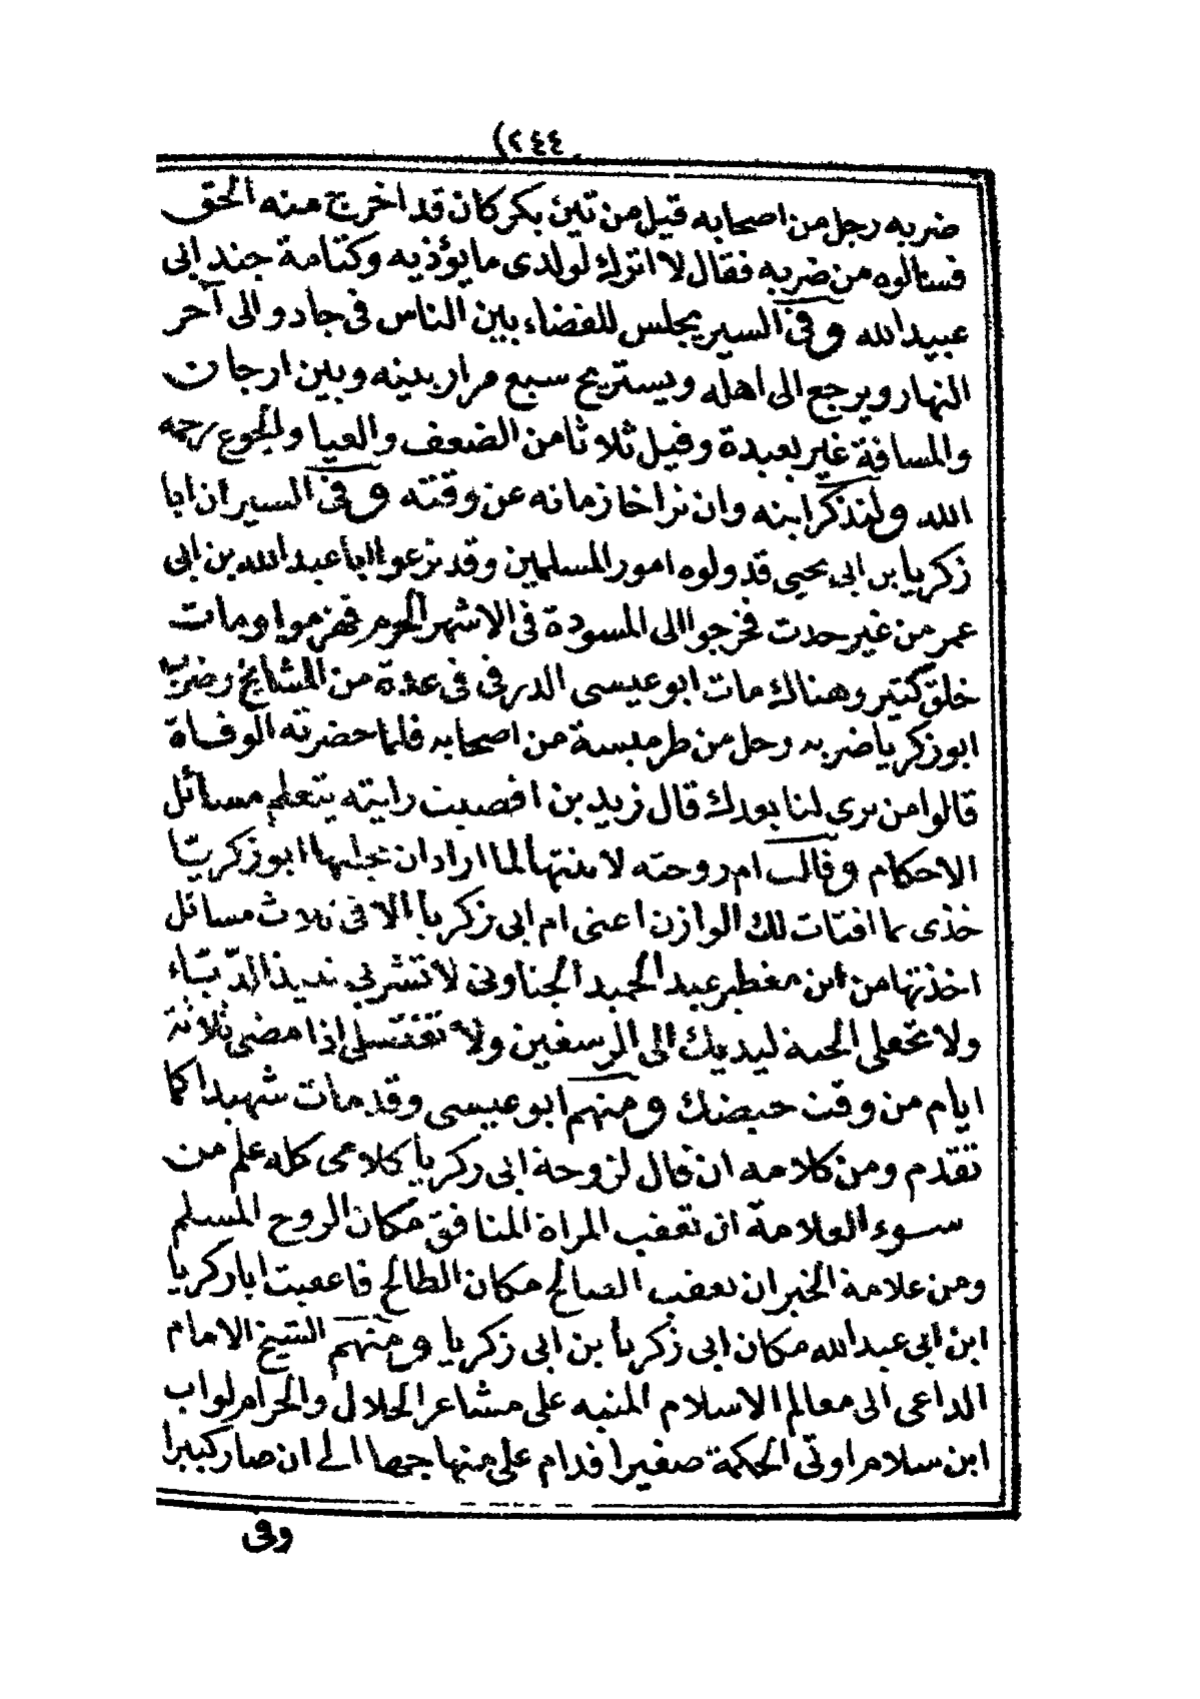 (٢٤٤
ضربه رجل من اصحابه قيل من تين بكر كان قد اخرج منه الحق
فسئالوه من ضربه فقال لا اترك لولدى ما يؤذيه وكتامة جند ابى
عبيد الله وفى السير يجلس للقضاء بين الناس فى جادو الى آخر
النهار ويرجع الى اهله ويستريح سبع مرار بينه وبين ارجان
والمسافة غير بعيدة وقيل ثلاثا من الضعف والعيا والجوع رحمه
الله ولنذكر ابنه وان تراخا زمانه عن وقته وفى السير ان ابا
زكريا بن ابى يحيى قد ولوه امور المسلمين وقد نزعوا ابا عبد الله بن ابى
عمر من غير حدث فخرجوا الى المسودة فى الاشهر الحرم فهزموا ومات
خلق كثير وهناك مات ابو عيسى الدرفى فى عدة من المشايخ وضرب
ابو زكريا ضربه رجل من طرميسة من اصحابه فلما حضرته الوفاة
قالوا من ترى لنا بعدك قال زيد بن افصيت رايته يتعلم مسائل
الاحكام وقالت ام زوجته لابنتها لما اراد ان يجلبها ابو زكريا
خذى بما افتات لك الوازن اعنى ام ابى زكريا الا فى ثلاث مسائل
اخذتها من ابن مغطير عبد الحميد الجناونى لا تشربى نبيذ الدّبّاء
ولا تجعلى الحنة ليديك الى الرسغين ولا تغتسلى اذا مضى ثلاثة
ايام من وقت حيضك ومنهم ابو عيسى وقد مات شهيدا كما
تقدم ومن كلامه ان قال لزوجة ابى زكريا كلامى كله علم من
سوء العلامة ان تعقب المراة المنافق مكان الزوج المسلم
ومن علامة الخير ان تعقب الصالح مكان الطالح فاعقبت ابا زكريا
ابن ابى عبد الله مكان ابى زكريا بن ابى زكريا ومنهم الشيخ الامام
الداعى الى معالم الاسلام المنبه على مشاعر الحلال والحرام لواب
ابن سلام اوتى الحكمة صغيرا فدام على منهاجها الى ان صار كبيرا
وفى